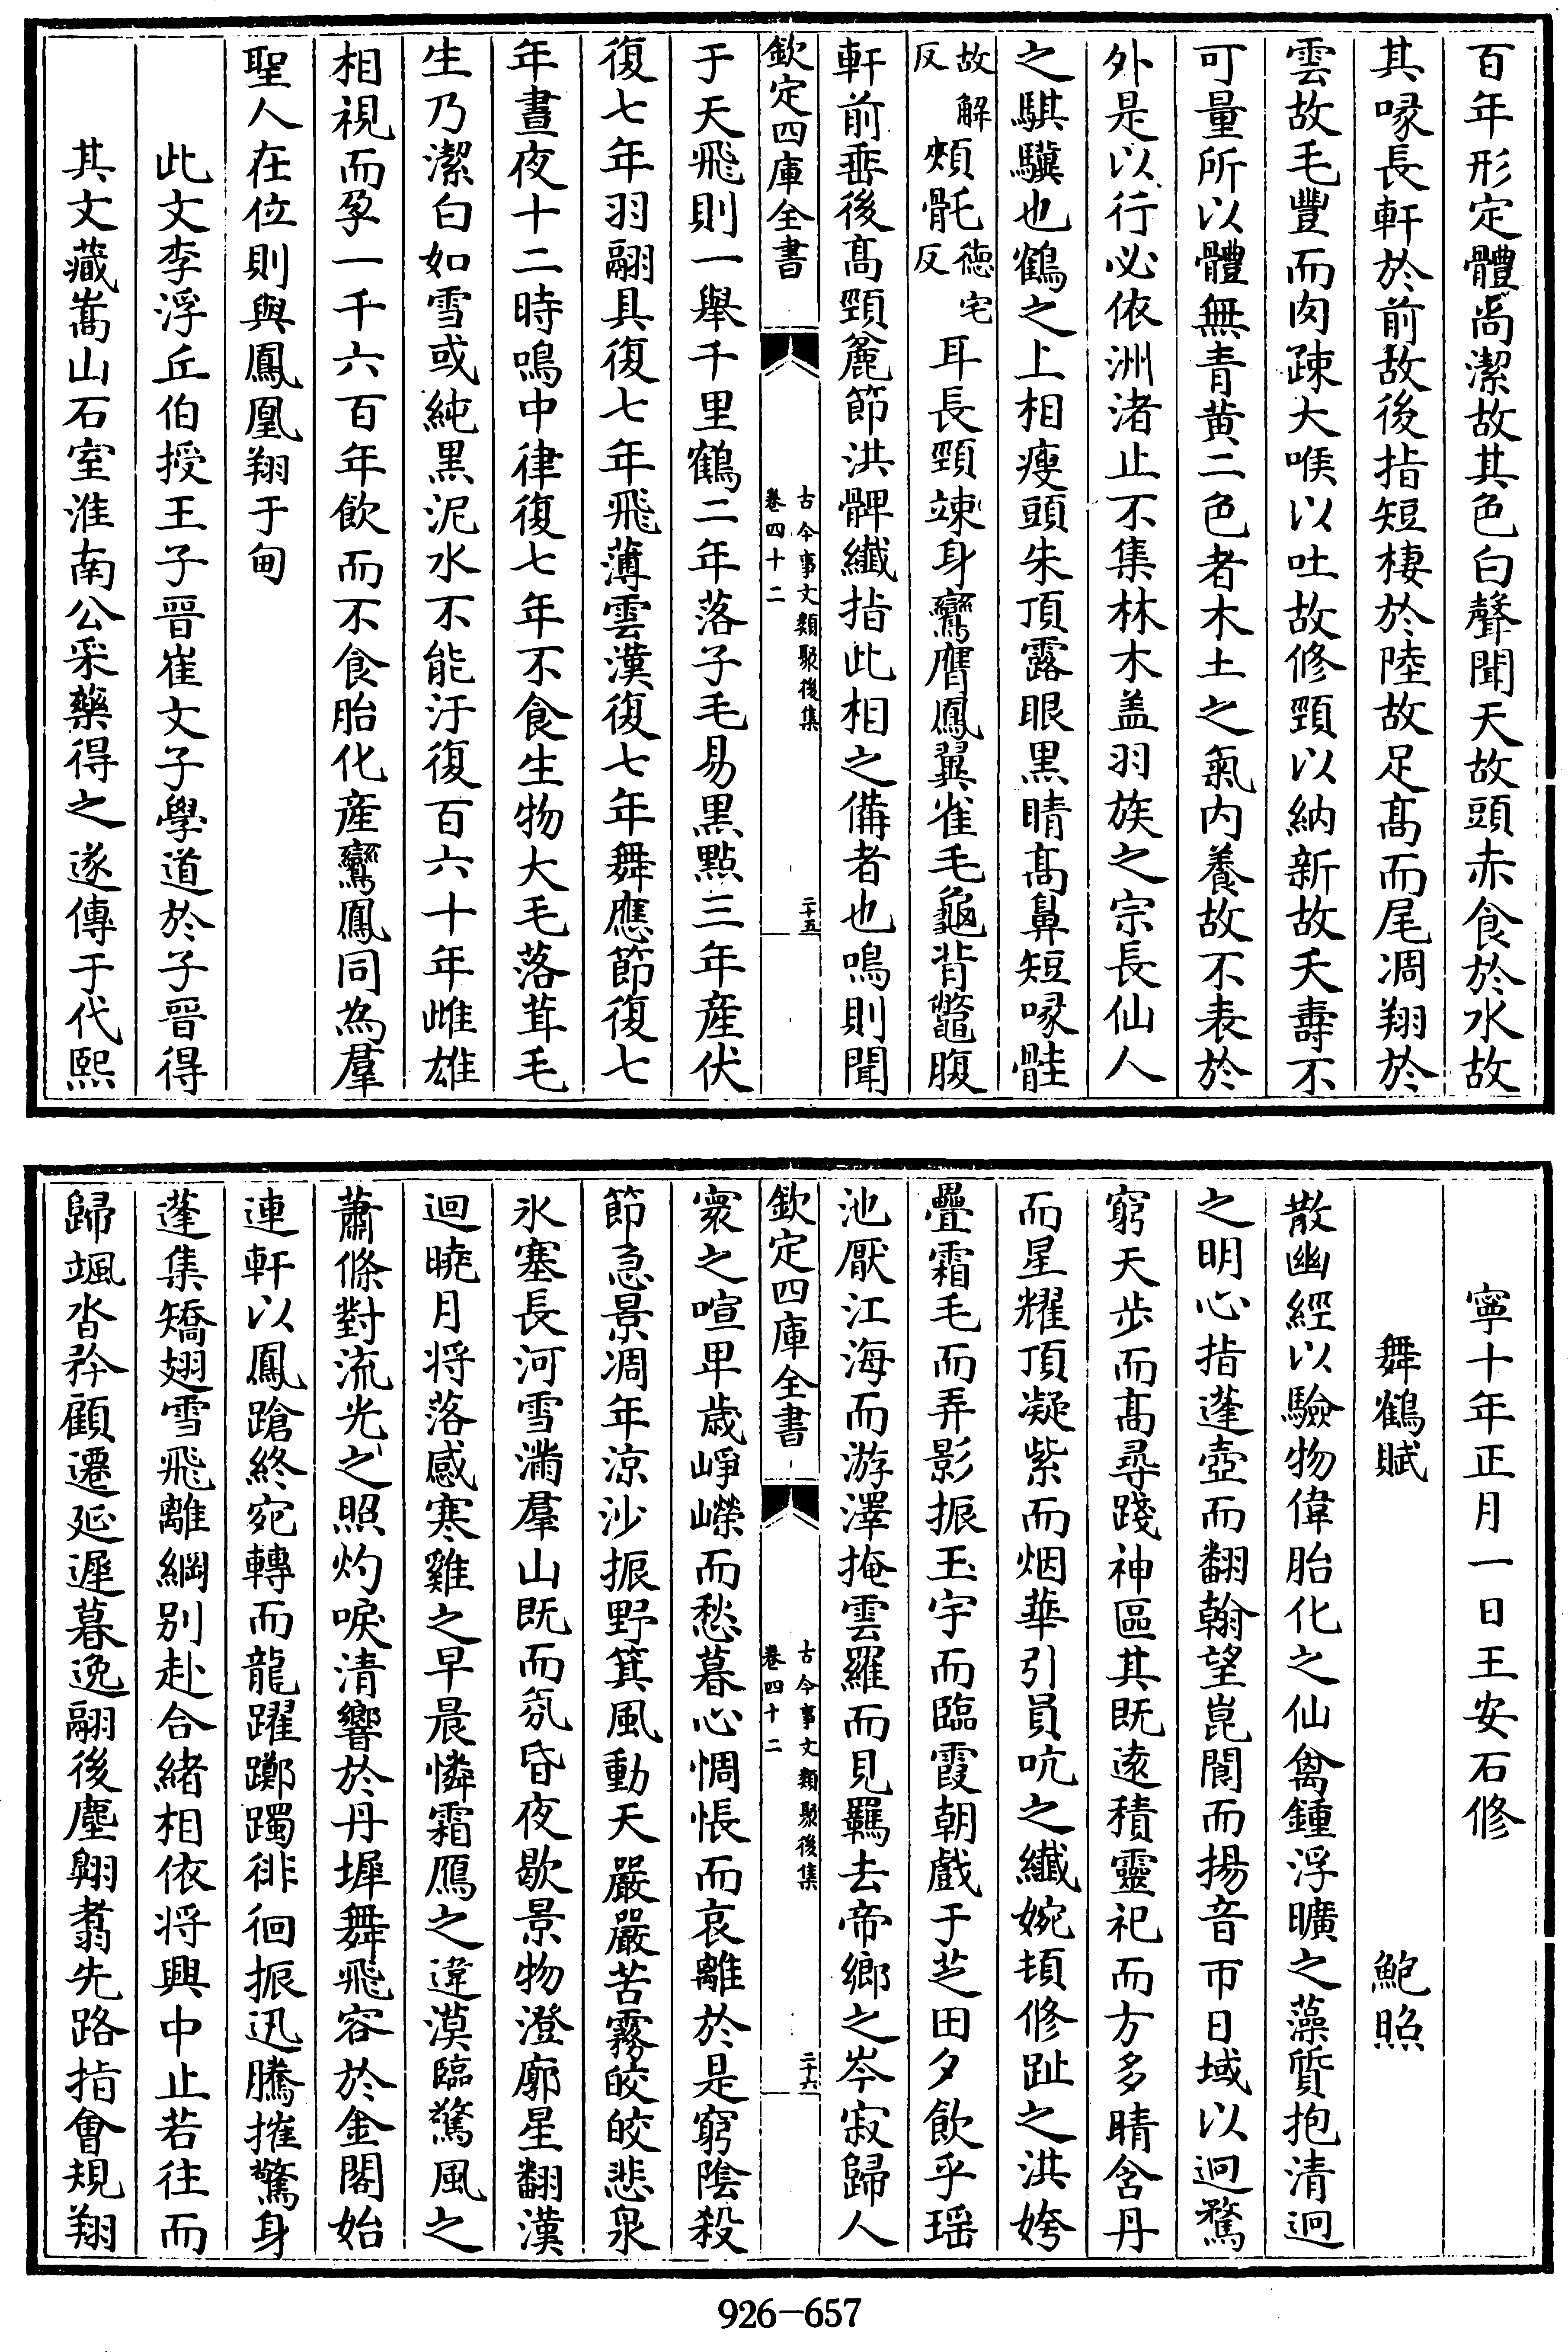 百年形定體尚潔故其色白聲聞天故頭赤食於水故
其喙長軒於前故後指短棲於陸故足髙而尾凋翔於
雲故毛豐而肉疎大喉以吐故修頸以納新故夭壽不
可量所以體無青黄二色者木土之氣内養故不表於
外是以行必依洲渚止不集林木盖羽族之宗長仙人
之騏驥也鶴之上相瘦頭朱頂露眼黒睛髙鼻短喙䯓
故解
反
頰䯌
徳宅
反
耳長頸竦身鸞膺鳳翼雀毛龜背鼈腹
軒前垂後髙頸麄節洪髀纖指此相之備者也鳴則聞
欽定四庫全書
古今事文類聚後集
卷四十二
二十五
于天飛則一舉千里鶴二年落子毛易黒點三年産伏
復七年羽翮具復七年飛薄雲漢復七年舞應節復七
年晝夜十二時鳴中律復七年不食生物大毛落茸毛
生乃潔白如雪或純黒泥水不能汙復百六十年雌雄
相視而孕一千六百年飲而不食胎化産鸞鳳同為羣
聖人在位則與鳳凰翔于甸
此文李浮丘伯授王子晉崔文子學道於子晉得
其文藏嵩山石室淮南公采藥得之遂傳于代熙
寧十年正月一日王安石修
舞鶴賦
鮑照
散幽經以驗物偉胎化之仙禽鍾浮曠之藻質抱清迥
之明心指蓬壺而翻翰望崑閬而揚音帀日域以迥騖
窮天步而髙尋踐神區其既逺積靈祀而方多睛含丹
而星耀頂凝紫而烟華引員吭之纖婉頓修趾之洪姱
疊霜毛而弄影振玉宇而臨霞朝戲于芝田夕飲乎瑶
池厭江海而游澤掩雲羅而見羈去帝鄉之岑寂歸人
欽定四庫全書
古今事文類聚後集
卷四十二
二十六
寰之喧卑歳崢嶸而愁暮心惆悵而哀離於是窮陰殺
節急景凋年涼沙振野箕風動天嚴嚴苦霧皎皎悲泉
氷塞長河雪滿羣山既而氛昏夜歇景物澄廓星翻漢
迴曉月将落感寒雞之早晨憐霜鴈之違漠臨驚風之
蕭條對流光之照灼唳清響於丹墀舞飛容於金閣始
連軒以鳳蹌終宛轉而龍躍躑躅徘徊振迅騰摧驚身
蓬集矯翅雪飛離綱别赴合緒相依将興中止若往而
歸颯沓矜顧遷延遲暮逸翮後塵翺翥先路指會規翔
926-657